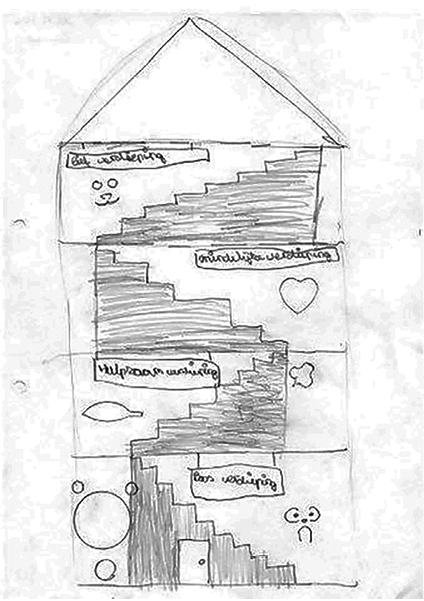 Lief verdieping
vriendelijke verdieping
Helpzaam verdieping
boos verdieping